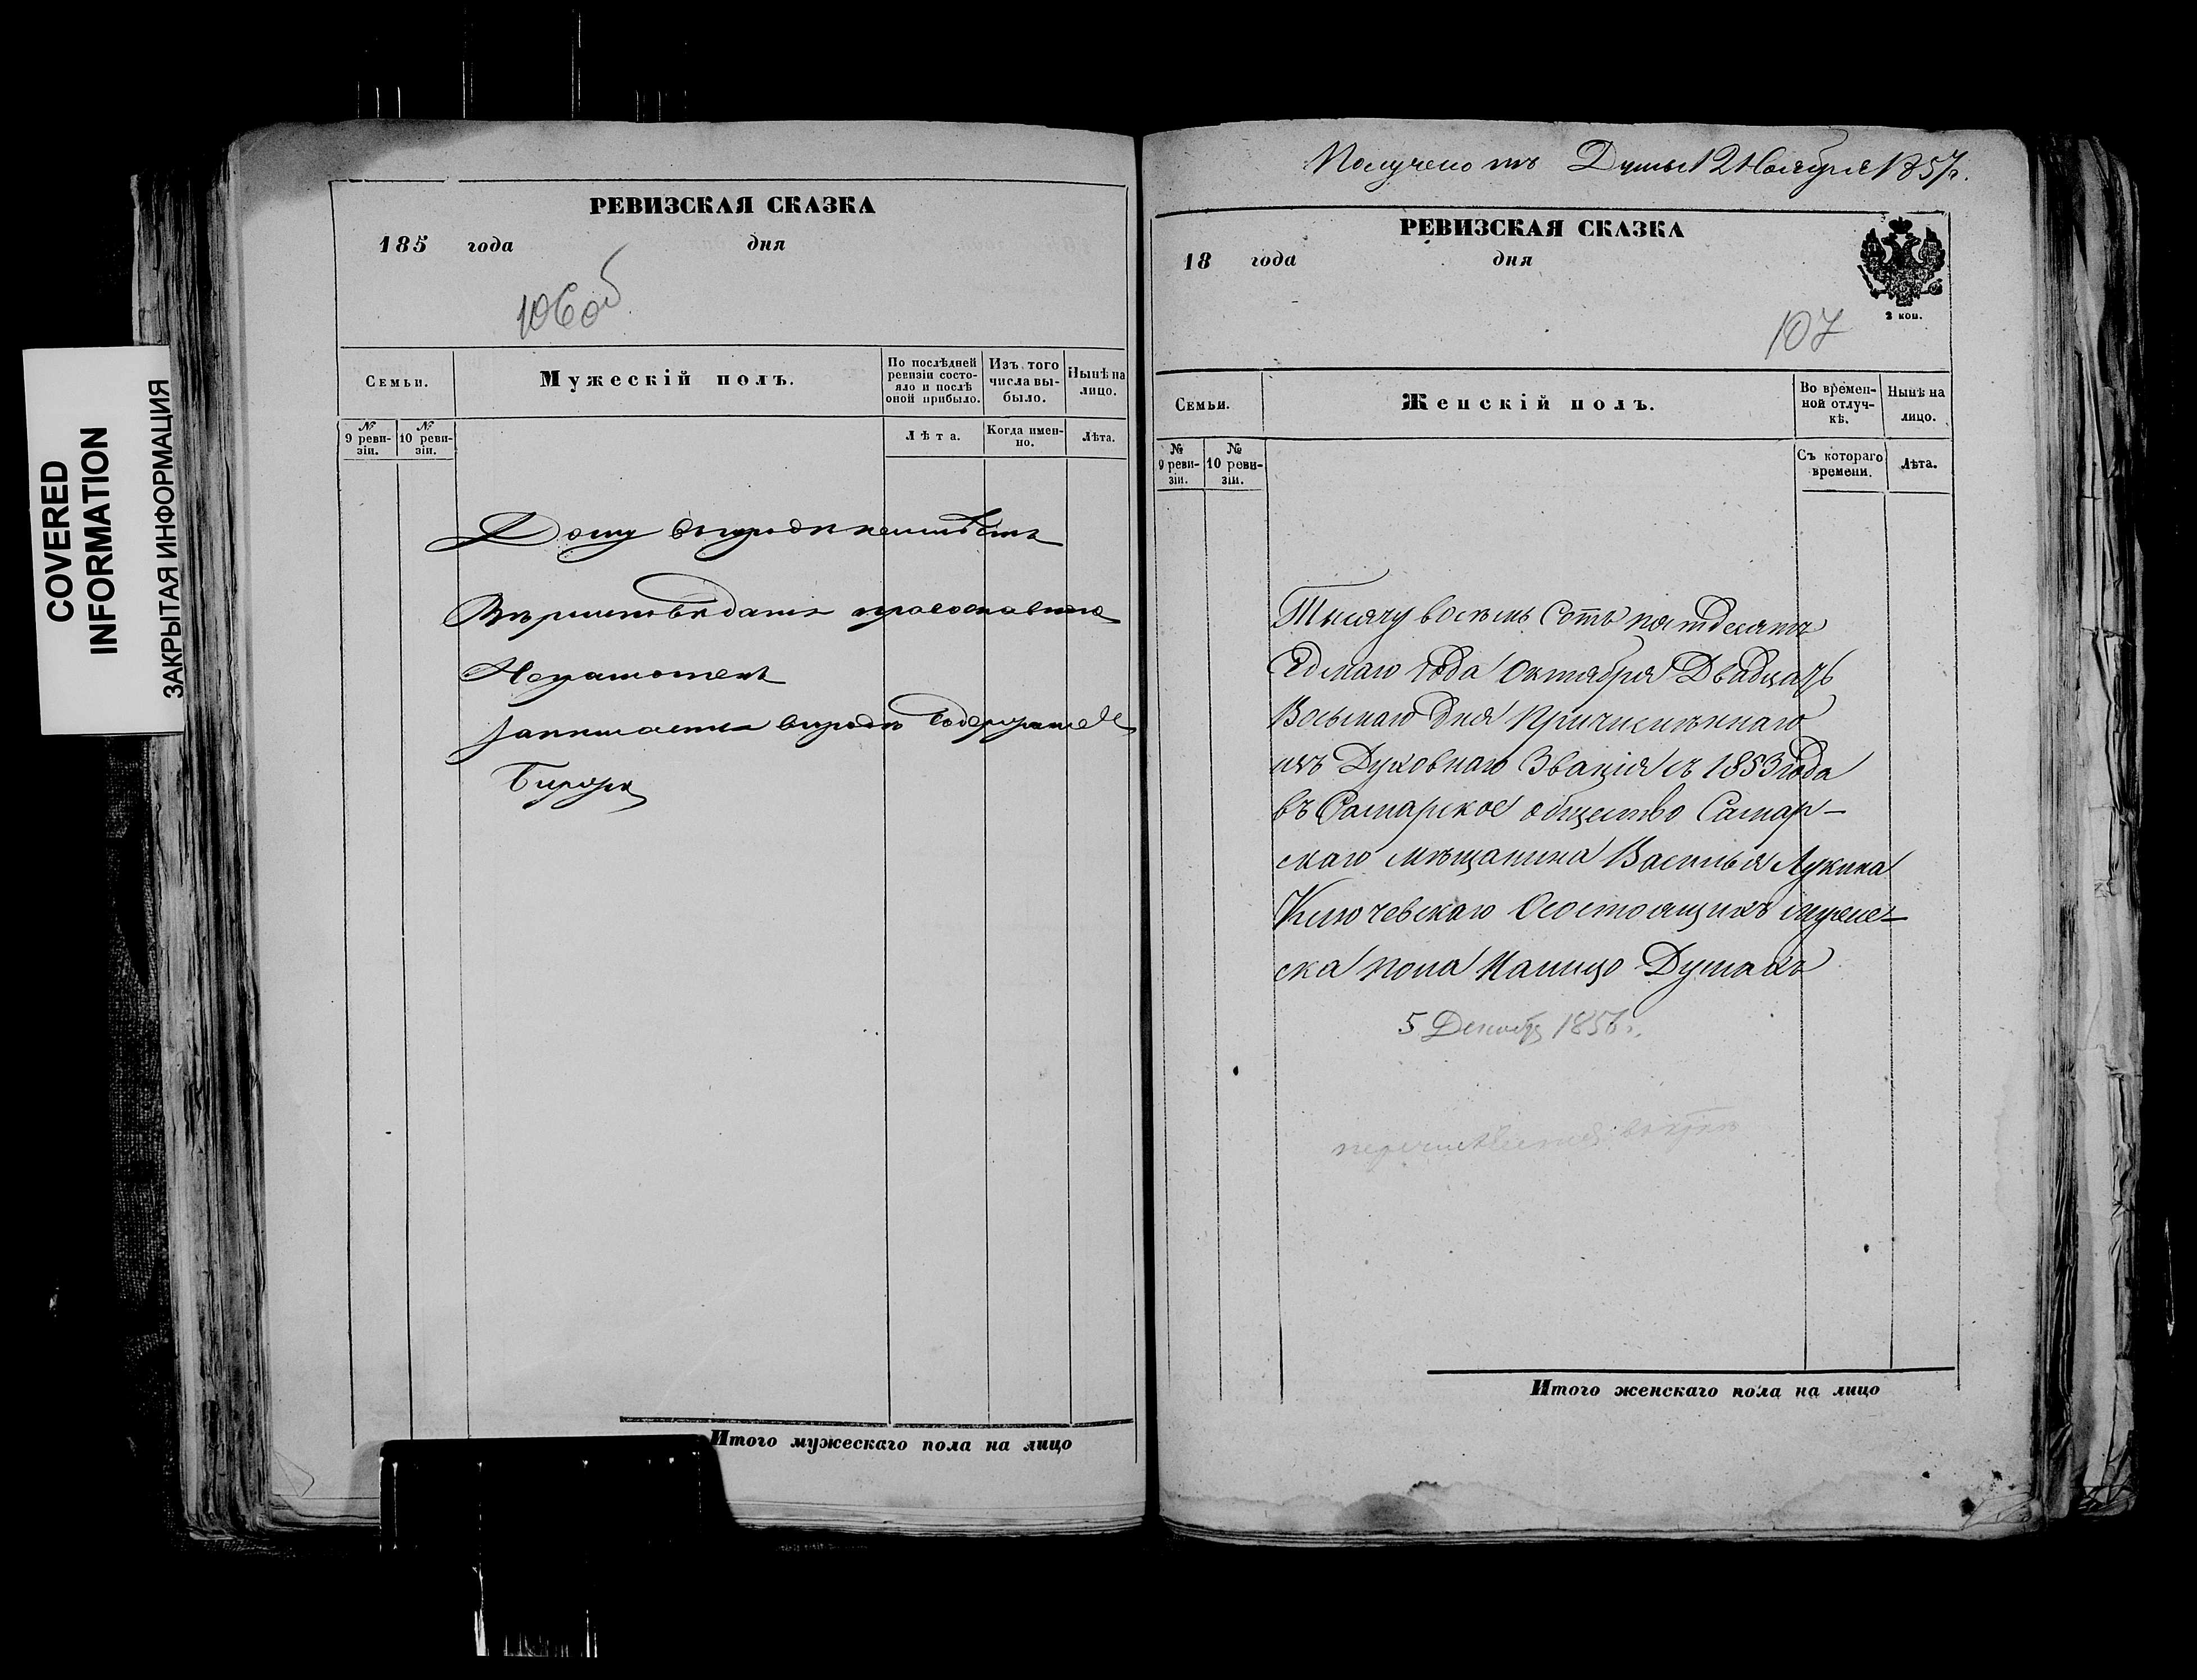 COVERED
INFORMATION
ЗАКРЫТАЯ ИНФОРМАЦИЯ
РЕВИЗСКАЯ СКАЗКА
185 года дня
106об
Семьи.
Мужескій полъ.
По послѣдней ревизіи состояло и послѣ оной прибыло.
Изъ того числа выбыло.
Нынѣ на лицо.
№ 9 ревизіи.
№ 10 ревизіи.
Лѣта.
Когда именно.
Лѣта.
Дому въ городѣ неимѣетъ
Вѣроисповѣданія православнаго
Неграмотенъ
Записанъ
Итого мужескаго пола на лицо
Получено изъ Думы 12 Ноября 1857г.
РЕВИЗСКАЯ СКАЗКА
18 года дня
2 коп.
107
Семьи.
Женскій полъ.
Во временной отлучкѣ.
Нынѣ на лицо.
№ 9 ревизіи.
№ 10 ревизіи.
Съ котораго времени.
Лѣта.
Тысячу восемь Сотъ пятдесятъ
Седмаго года Октября Двадцать
Восьмаго дня Причисленнаго
изъ Духовнаго Званія съ 1853 года
въ Самарское общество Самар-
скаго мѣщанина Василья Лукина
Ключевскаго Осостоящихъ мужес-
ска пола налицо Душахъ
5 Декабр 1856г.
Итого женскаго пола на лицо